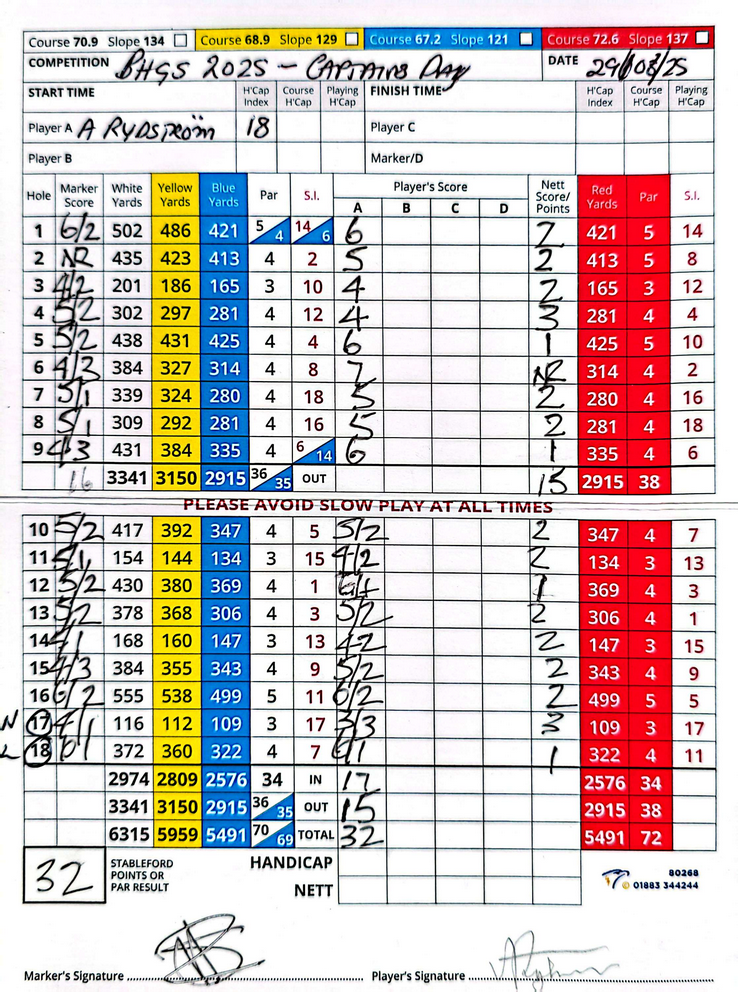 Course 70.9 Slope 134 Course 68.9 Slope 129 Course 67.2 Slope 121 Course 72.6 Slope 137
COMPETITION BHGS 2025 - CAPTAINS DAY DATE 29/03/25
START TIME H'Cap Index Course H'Cap Playing H'Cap FINISH TIME H'Cap Index Course H'Cap Playing H'Cap
Player A A RYDSTRÖM 18 Player C
Player B Marker/D
Hole Marker Score White Yards Yellow Yards Blue Yards Par S.I. Player's Score Nett Score/Points Red Yards Par S.I.
A B C D
1 6/2 502 486 421 5 4 14 6 6 2 421 5 14
2 NR 435 423 413 4 2 5 2 413 5 8
3 4/2 201 186 165 3 10 4 2 165 3 12
4 5/2 302 297 281 4 12 4 3 281 4 4
5 5/2 438 431 425 4 4 6 1 425 5 10
6 4/3 384 327 314 4 8 7 NR 314 4 2
7 5/1 339 324 280 4 18 5 2 280 4 16
8 5/1 309 292 281 4 16 5 2 281 4 18
9 4/3 431 384 335 4 6 14 6 1 335 4 6
16 3341 3150 2915 36 35 OUT 15 2915 38
PLEASE AVOID SLOW PLAY AT ALL TIMES
10 5/2 417 392 347 4 5 5/2 2 347 4 7
11 5/1 154 144 134 3 15 4/2 2 134 3 13
12 5/2 430 380 369 4 1 6/1 1 369 4 3
13 5/2 378 368 306 4 3 5/2 2 306 4 1
14 4/1 168 160 147 3 13 4/2 2 147 3 15
15 4/3 384 355 343 4 9 5/2 2 343 4 9
16 6/2 555 538 499 5 11 6/2 2 499 5 5
N 17 4/1 116 112 109 3 17 3/3 3 109 3 17
L 18 6/1 372 360 322 4 7 6/1 1 322 4 11
2974 2809 2576 34 IN 17 2576 34
3341 3150 2915 36 35 OUT 15 2915 38
6315 5959 5491 70 69 TOTAL 32 5491 72
32 STABLEFORD POINTS OR PAR RESULT HANDICAP
NETT
80268
© 01883 344244
Marker's Signature Player's Signature